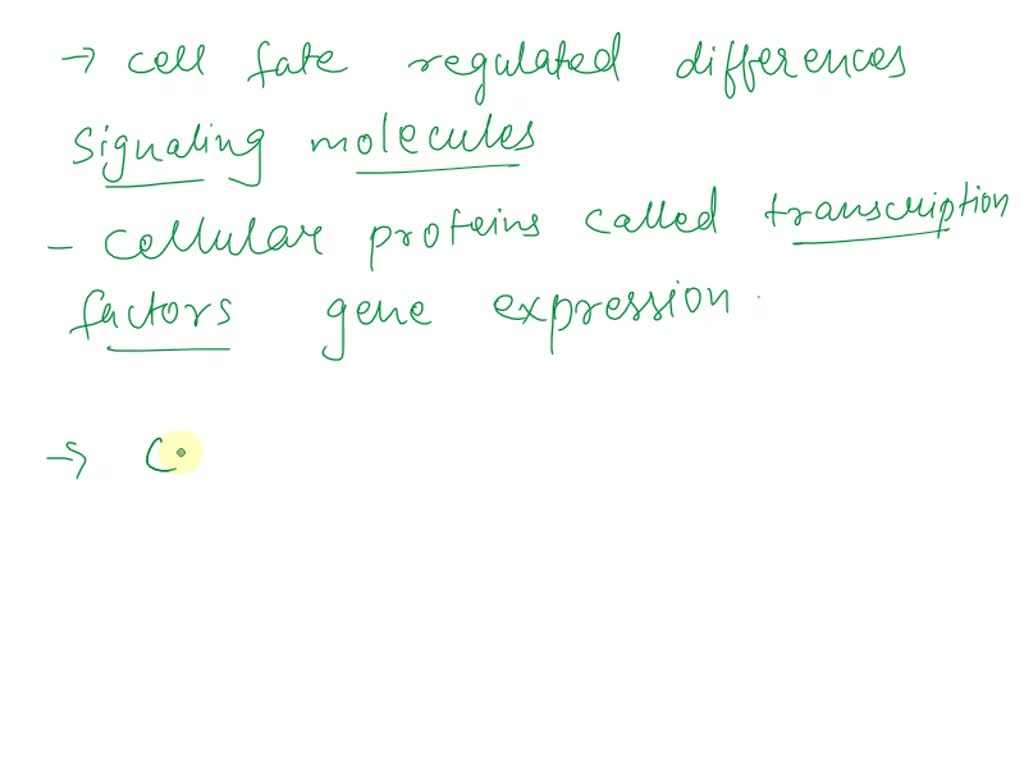 → cell fate regulated differences
signaling molecules
- cellular proteins called transcription
factors gene expression.
→ C